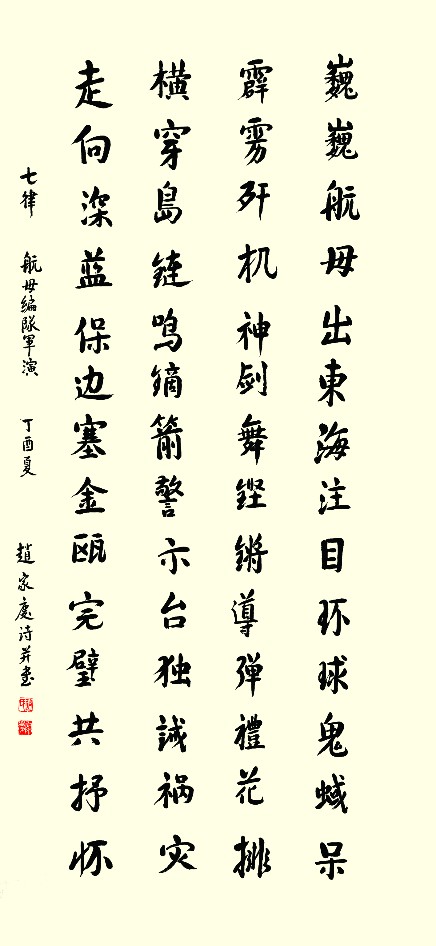 巍巍航母出東海注目环球鬼蜮呆
霹雳歼机神剑舞铿锵導弹禮花排
横穿島鏈鸣镝箭警示台独誡祸灾
走向深蓝保边塞金瓯完璧共抒怀
七律 航母编隊軍演 丁酉夏 趙家處诗并书